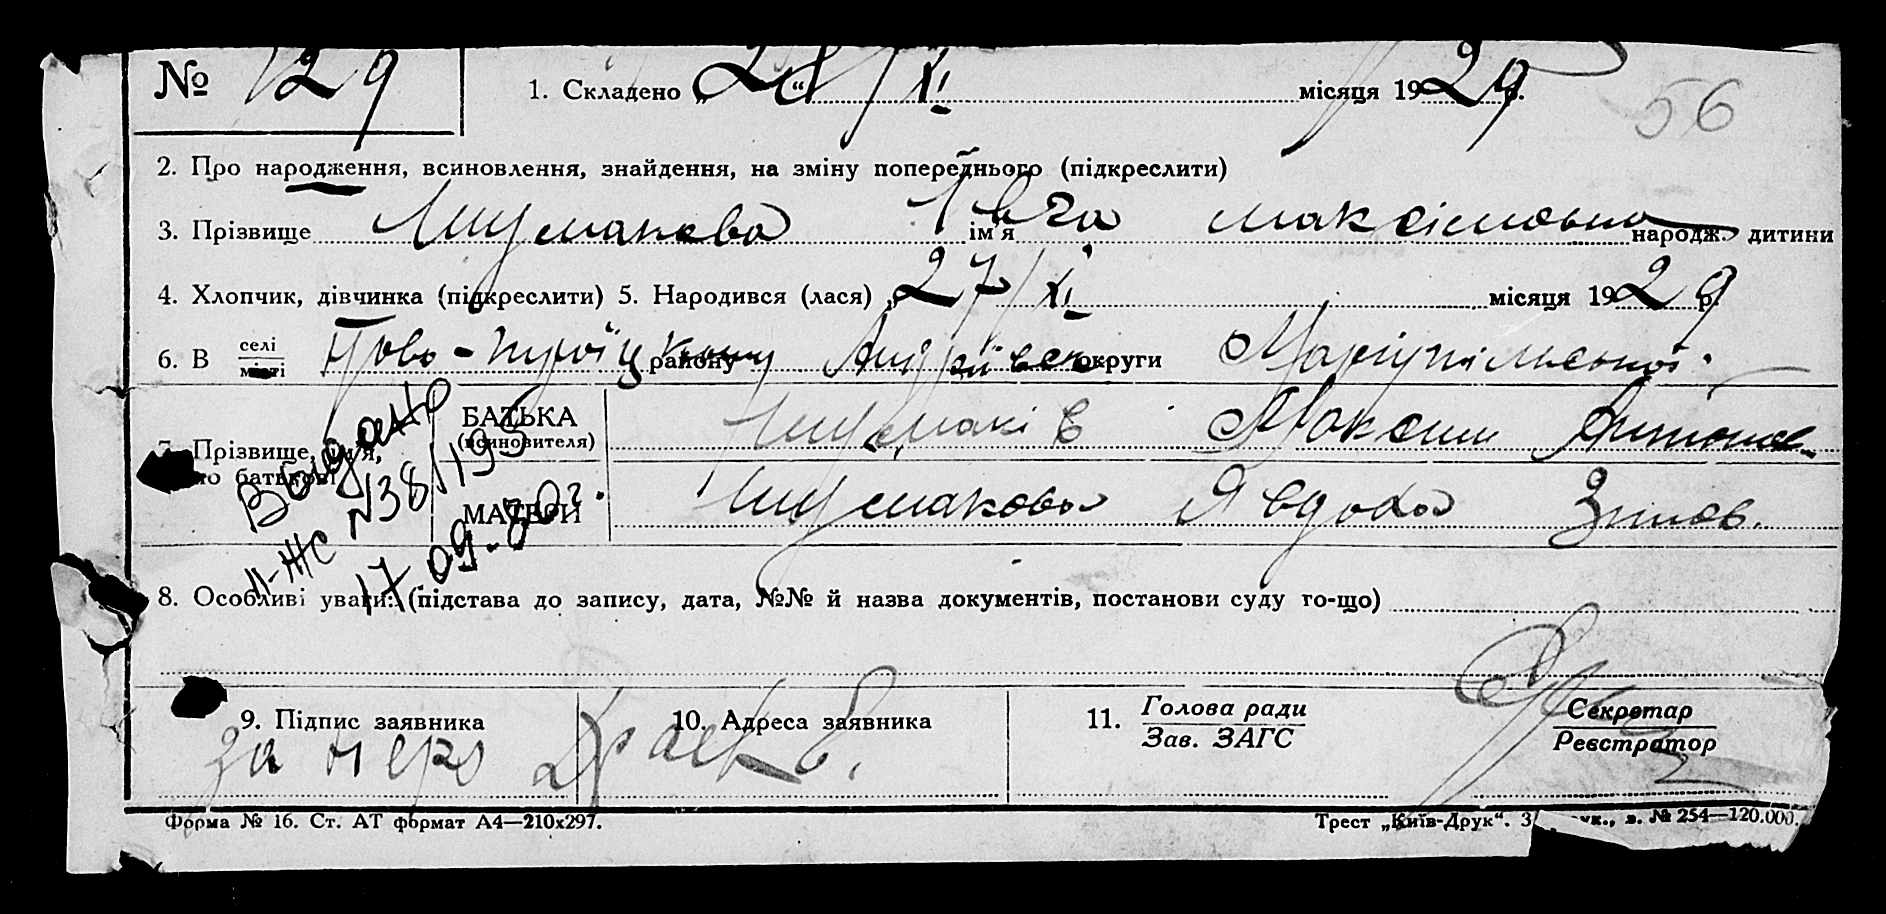 № 129 1. Складено „28“ / XI місяця 1929 р. 56
2. Про народження, всиновлення, знайдення, на зміну попереднього (підкреслити)
3. Прізвище Шумакова ім'я Івга Максімовна народж. дитини
4. Хлопчик, дівчинка (підкреслити) 5. Народився (лася) „27/XI місяця 1929 р.
6. В селі місті Ново-Троїцькому району Андріївськ округи Маріупільської.
7. Прізвище, ім'я, по батькові
БАТЬКА (всиновителя) Шумаків Максим Антонов.
МАТЕРИ Шумакова Явдоха Зинов.
Видано
II-ЖС №38/193
17.09.80г.
8. Особливі уваги: (підстава до запису, дата, №№ й назва документів, постанови суду то-що)
9. Підпис заявника 10. Адреса заявника 11. Голова ради Зав. ЗАГС Секретар Реєстратор
за
Форма № 16. Ст. АТ формат А4—210х297. Трест „Київ-Друк“. з. № 254—120.000.